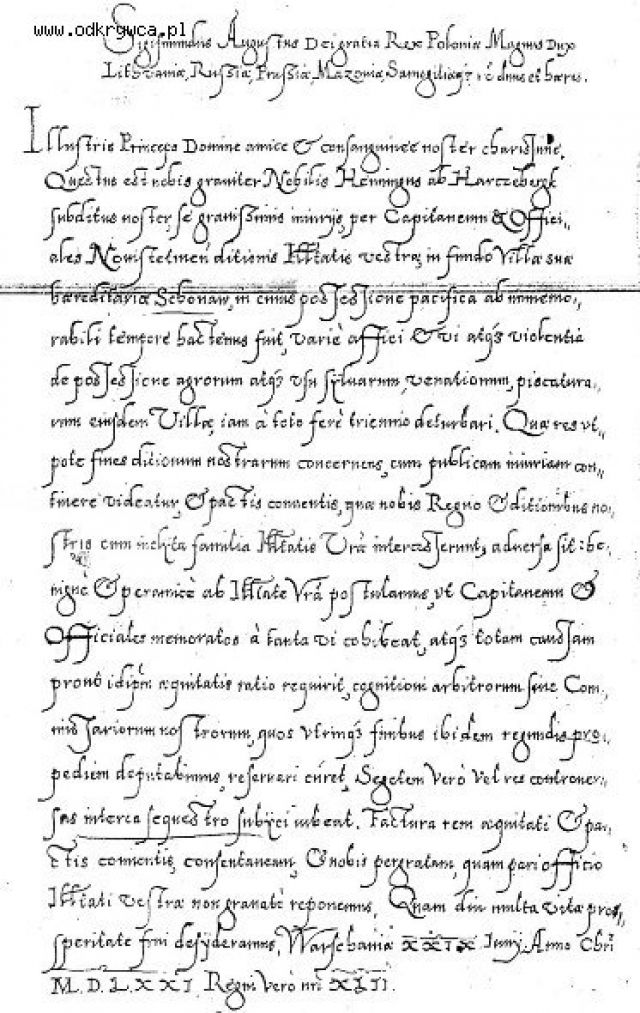 www.odkrywca.pl
Sigismundus Augustus Dei gratia Rex Poloniæ Magnus Dux
Lithuaniæ, Russiæ, Prussiæ, Mazouiæ, Samogitiæq; dñus et hæres.
Illustris Princeps Domine amice & consanguinee noster charissime.
Questus est nobis grauiter Nobilis Henningus ab Harczebergk
subditus noster, se grauissimis iniurijs, per Capitaneum & Offici-
ales ditionis Illtatis vestræ, in fundo Villæ suæ
hæreditariæ Schonaw, in cuius possessione pacifica ab immemo,,
rabili tempore hactenus fuit, variè affici & vi atq; violentia
de possessione agrorum atq; vsu syluarum, venationum, piscatura,,
rum eiusdem Villæ, iam à toto ferè triennio deturbari. Quæ res vt,,
pote fines ditionum nostrarum concernens, cum publicam iniuriam con,,
tinere videatur, & pactis conuentis, quæ nobis Regno & ditionibus no,,
stris cum inclyta familia Illtatis Vræ intercesserunt, aduersa sit: be,,
nignè & peramicè ab Illtate Vrã postulamus, vt Capitaneum &
Officiales memoratos à tanta vi cohibeat, atq; totam caussam
pront idipm æquitatis ratio requirit, cognitioni arbitrorum siue Com,,
missariorum nostrorum, quos vtrinq; finibus ibidem regundis pro,,
pediem deputabimus, reseruari curet, Segetem verò vel res controuer,,
sas interea sequestro subijci iubeat. Factura rem æquitati & pa,,
ctis conuentis, consentaneam, & nobis pergratam, quam pari officio
Illtati vestræ non grauatè reponemus, Quam diu multa vitæ pros,,
speritate frui desyderamus, Warschauiæ XXIX Junij. Anno Chri
M.D.LXXI. Regni verò nri XLII.